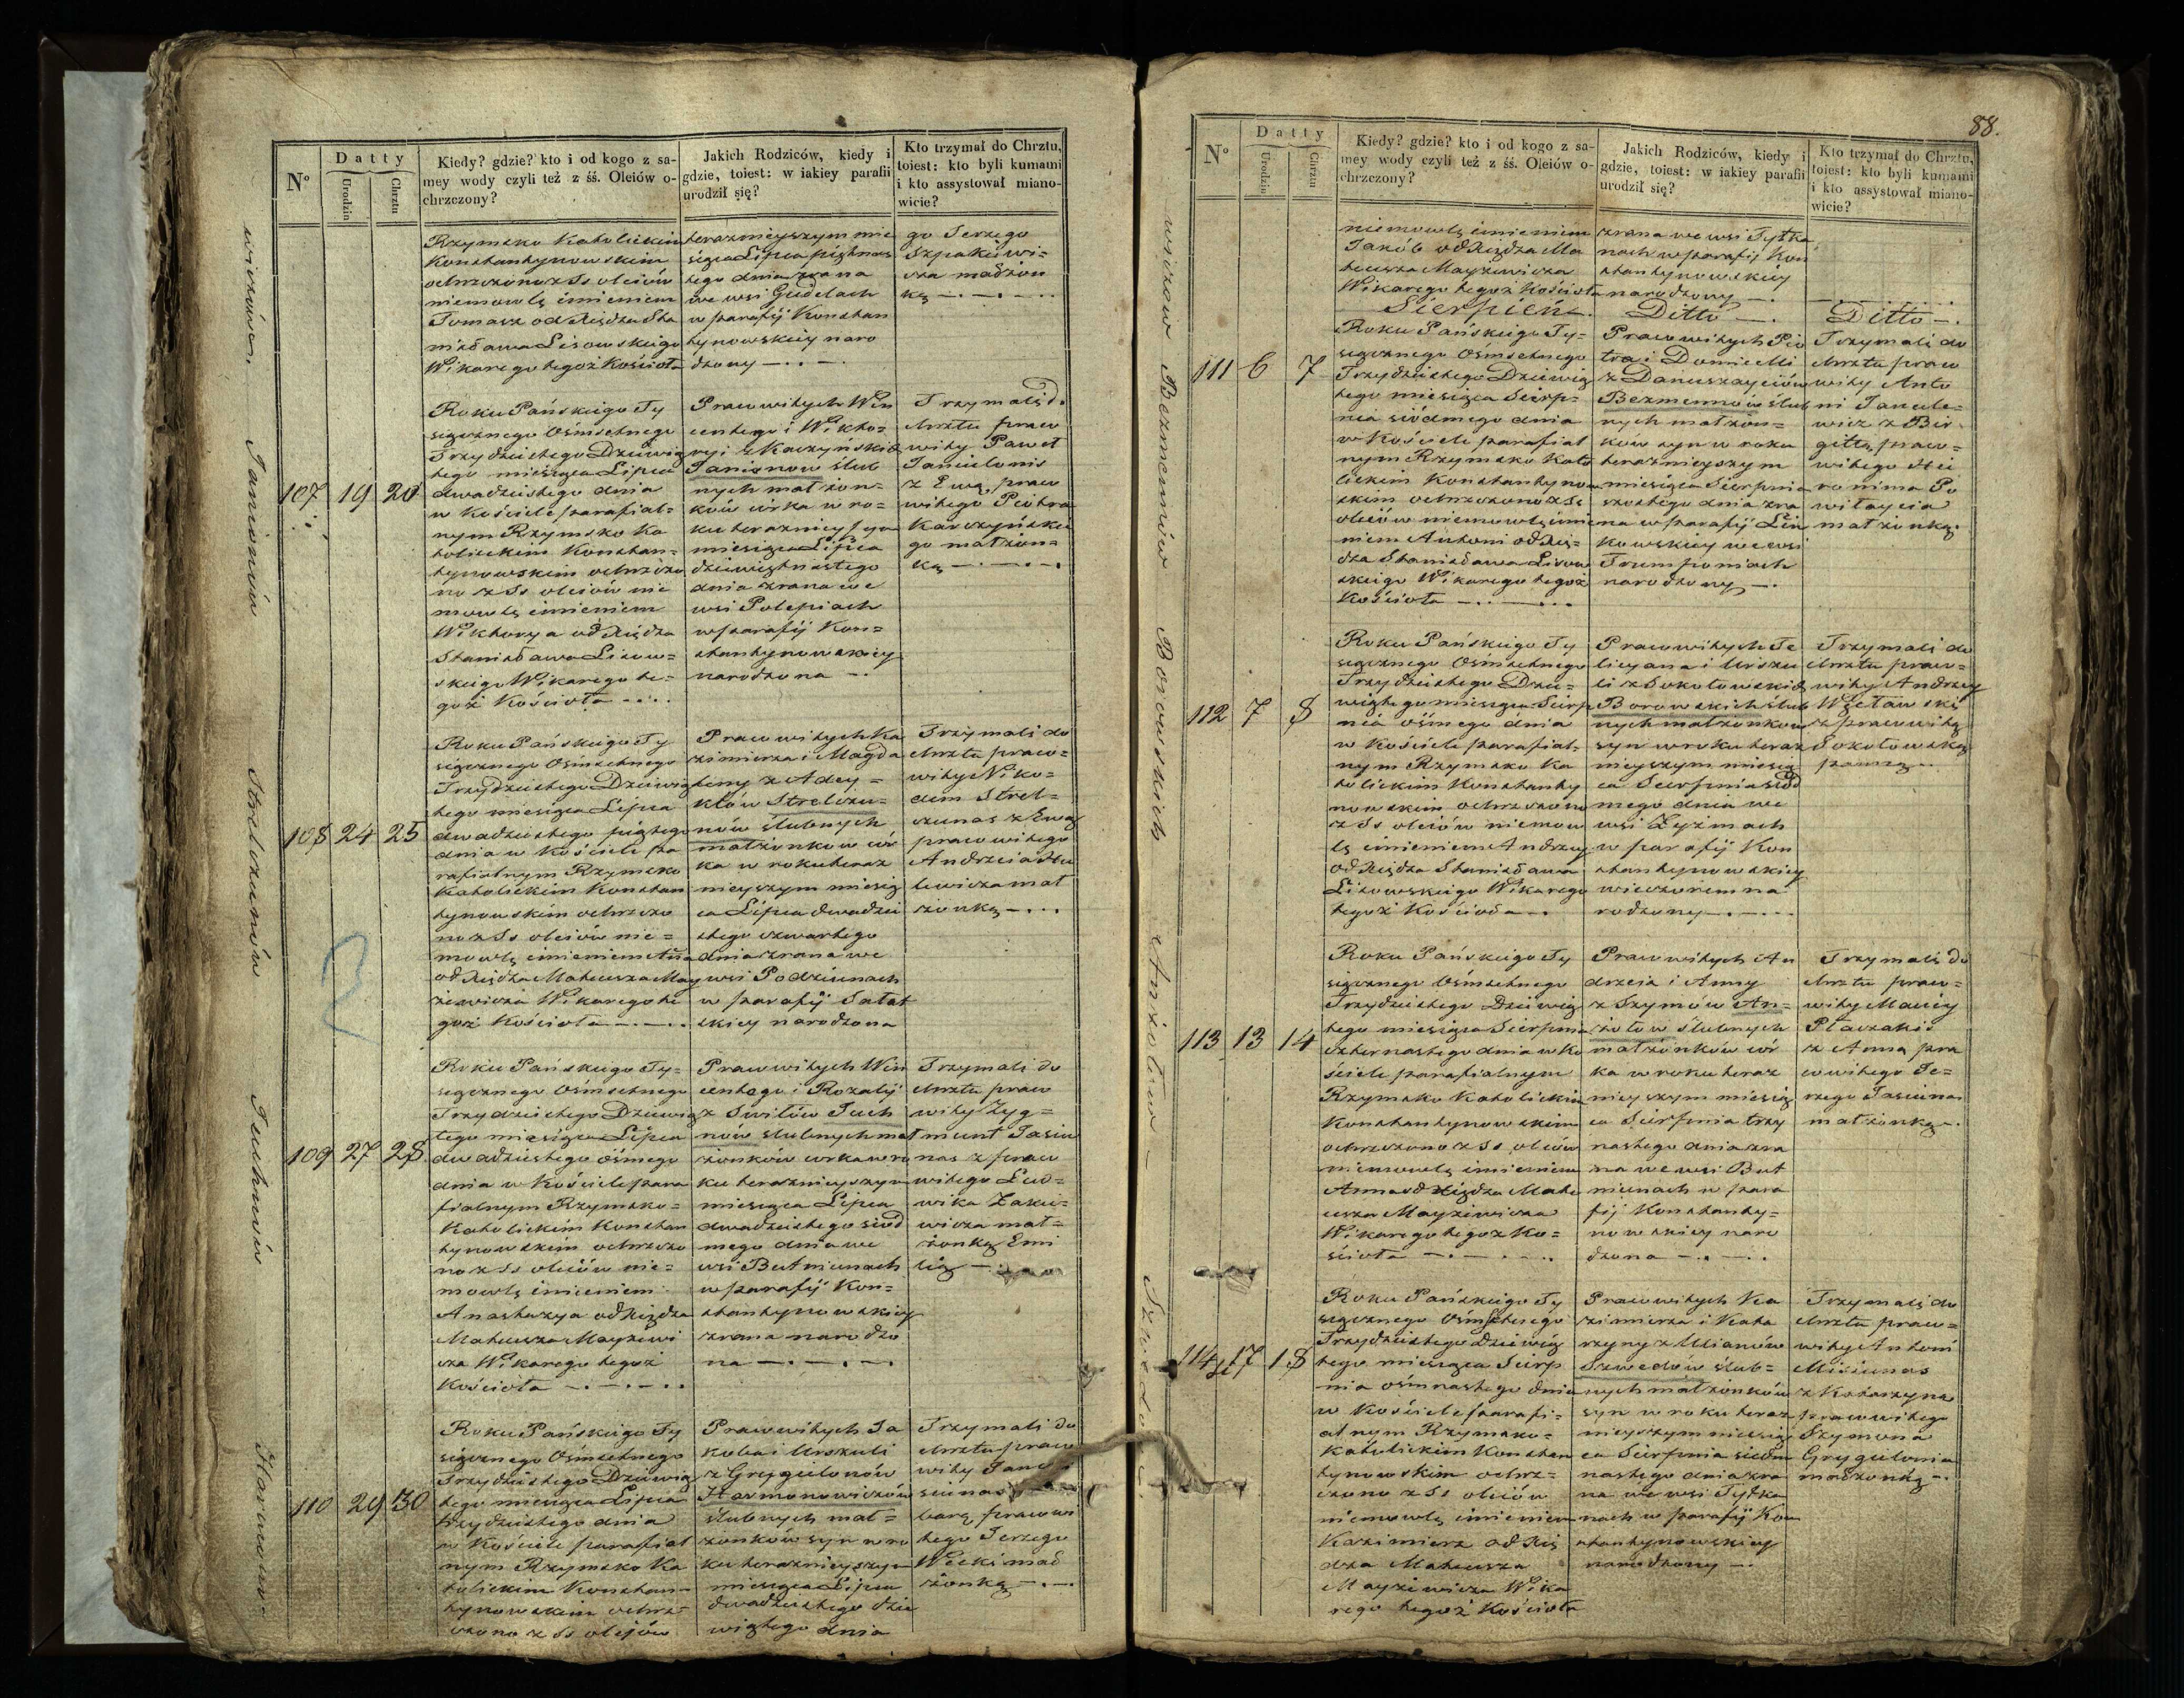 88.
N°
Datty
Urodzin
Chrztu
Kiedy? gdzie? kto i od kogo z sa-
mey wody czyli też z śś. Oleiów o-
chrzczony?
Jakich Rodziców, kiedy i
gdzie, toiest: w iakiey parafii
urodził się?
Kto trzymał do Chrztu,
toiest: kto byli kumami
i kto assystował miano-
wicie?
Rzymsko Katolickim
Konstantynowskim
ochrzczono z Ss oleiów
niemowlę imieniem
Tomasz od Xiędza Sta
nisława Lisowskiego
Wikarego tegoż Kościoła
teraznieyszym mie
siąca Lipca piętnas
tego dnia zrana
we wsi Gudelach
w parafij Konstan
tynowskiey naro
dzony
go Jerzego
Szpakowi=
cza małżon
ką
107 19 20
Roku Pańskiego Ty
siącznego Ośmsetnego
Trzydziestego Dziewią
tego miesiąca Lipca
dwadziestego dnia
w Kościele parafial=
nym Rzymsko Ka
tolickim Konstan=
tynowskim ochrzczo
no z Ss oleiów nie
mowlę imieniem
Wiktorya od Xiędza
Stanisława Lisow=
skiego Wikarego te=
goż Kościoła
Prawowitych Win
centego i Wikto=
ryi z Kaczyńskich
Janionow ślub
nych małżon=
ków córka w ro=
ku teraznieyszym
miesiąca Lipca
dziewiętnastego
dnia zrana we
wsi Polepiach
w parafij Kon=
stantynowskiey
narodzona
Trzymali do
chrztu praw
wity Paweł
Janielonis
z Ewą praw
witego Piotra
Karczyńskie
go małżon=
ką
108 24 25
Roku Pańskiego Ty
siącznego Ośmsetnego
Trzydziestego Dziewią
tego miesiąca Lipca
dwadziestego piątego
dnia w Kościele pa
rafialnym Rzymsko
Katolickim Konstan
tynowskim ochrzczo
no z Ss oleiów nie=
mowlę imieniem Anna
od Xiędza Mateusza May
ziewicza Wikarego te
goż Kościoła
Prawowitych Ka
zimierza i Magda
leny z Adey=
kłów Strelczu=
nów ślubnych
małżonków cór
ka w roku teraz
nieyszym miesią
ca Lipca dwadzie
stego czwartego
dnia zrana we
wsi Podziunach
w parafij Sałat
skiey narodzona
Trzymali do
chrztu praw=
wity Niko=
dem Strel=
czunas z Ewą
prawowitego
małżonką
109 27 28
Roku Pańskiego Ty=
siącznego Ośmsetnego
Trzydziestego Dziewią
tego miesiąca Lipca
dwadziestego ósmego
dnia w Kościele para
fialnym Rzymsko=
Katolickim Konstan
tynowskim ochrzczo
no z Ss oleiów nie=
mowlę imieniem
Anastazya od Xiędza
Mateusza Mayziewi
cza Wikarego tegoż
Kościoła
Prawowitych Win
centego i Rozalij
z Switów Juch
nów ślubnych mał
żonków córka w ro
ku teraznieyszym
miesiąca Lipca
dwadziestego siód
mego dnia we
wsi Butniunach
w parafij Kon=
stantynowskiey
zrana narodzo
na
Trzymali do
chrztu praw
wity Zyg=
munt Jasiu
nas z praw
witego Lud=
wika Zaku=
wicza mał=
żonką Emi
lią
110 29 30
Roku Pańskiego Ty
siącznego Ośmsetnego
Trzydziestego Dziewią
tego miesiąca Lipca
trzydziestego dnia
w Kościele parafial
nym Rzymsko Ka
tolickim Konstan=
tynowskim ochrz=
czono z Ss oleiów
Prawowitych Ja
kuba i Urszuli
z Grygielonów
Harmonowiczów
ślubnych mał=
żonków syn w ro
ku teraznieyszym
miesiąca Lipca
dwadziestego dzie
wiątego dnia
Trzymali do
chrztu praw
wity
barą prawowi
tego Jerzego
małżonką
Janionów
Strelczunów
Juchnów
niemowlę imieniem
Jakób od Xiędza Ma
teusza Mayziewicza
Wikarego tegoż Kościoła
zrana we wsi Tytka
nach w parafij Kon
stantynowskiey
narodzony
Sierpień Ditto Ditto
111 6 7
Roku Pańskiego Ty=
siącznego Ośmsetnego
Trzydziestego Dziewią
tego miesiąca Sierp=
nia siódmego dnia
w Kościele parafial
nym Rzymsko Kato
lickim Konstantynow
skim ochrzczono z Ss
oleiów niemowlę imie
niem Antoni od Xię=
dza Stanisława Lisow
skiego Wikarego tegoż
Kościoła
Prawowitych Pio
tra i Domiceli
z Danuszayciów
Bezmennów ślub
nych małżon=
ków syn w roku
teraznieyszym
miesiąca Sierpnia
szóstego dnia zra
na w parafij Lin
kowskiey we wsi
Trumponiach
narodzony
Trzymali do
chrztu praw
wity Anto
ni Janule=
wicz z Bir
gitą praw=
witego Hei
ronima Po
wiłaycia
małżonką
112 7 8
Roku Pańskiego Ty
siącznego Ośmsetnego
Trzydziestego Dzie=
wiątego miesiąca Sierp
nia ósmego dnia
w Kościele parafial=
nym Rzymsko Ka
tolickim Konstanty
nowskim ochrzczono
z Ss oleiów niemow
lę imieniem Andrzey
od Xiędza Stanisława
Lisowskiego Wikarego
tegoż Kościoła
Prawowitych Fe
licyana i Urszu
li z Sokołowskich
Borowskich ślub
nych małżonków
syn w roku teraz
nieyszym miesią
ca Sierpnia siód
mego dnia we
wsi Żyżmach
w parafij Kon
stantynowskiey
wieczorem na
rodzony
Trzymali do
chrztu praw=
wity Andrzey
z prawowitą
Sokołowską
panną
113 13 14
Roku Pańskiego Ty
siącznego Ośmsetnego
Trzydziestego Dziewią
tego miesiąca Sierpnia
czternastego dnia w Ko
ściele parafialnym
Rzymsko Katolickim
Konstantynowskim
ochrzczono z Ss oleiów
niemowlę imieniem
Anna od Xiędza Mate
usza Mayziewicza
Wikarego tegoż Ko=
ścioła
Prawowitych An
drzeia i Anny
z Szymów An=
żołów ślubnych
małżonków cór
ka w roku teraz
nieyszym miesią
ca Sierpnia trzy
nastego dnia zra
na we wsi But
niunach w para
fij Konstanty=
nowskiey naro
dzona
Trzymali do
chrztu praw=
wity Maciey
Płaczakis
z Anną pra
wowitego Je=
rzego Jasiuna
małżonką
114 17 18
Roku Pańskiego Ty
siącznego Ośmsetnego
Trzydziestego Dziewią
tego miesiąca Sierp
nia ośmnastego dnia
w Kościele parafi=
alnym Rzymsko=
Katolickim Konstan
tynowskim ochrz=
czono z Ss oleiów
niemowlę imieniem
Kazimierz od Xię
dza Mateusza
Mayziewicza Wika
rego tegoż Kościoła
Prawowitych Ka
zimierza i Kata
rzyny z Ulianów
Szwedów ślub=
nych małżonków
syn w roku teraz
nieyszym miesią
ca Sierpnia siedm
nastego dnia zra
na we wsi Tytka
nach w parafij Kon
stantynowskiey
narodzony
Trzymali do
chrztu praw=
wity Antoni
Misiunas
z Katarzyną
prawowitego
Szymona
Grygielonia
małżonką
Bezmennów
Borowskich
Anżołów
Szwedów